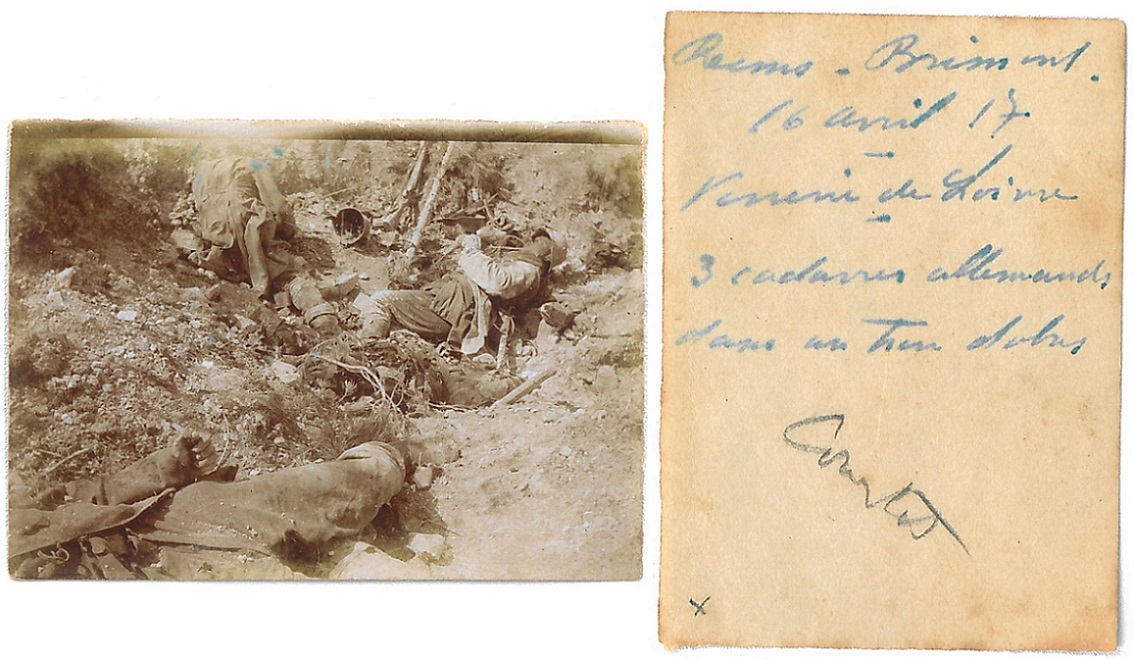 Reims - Brimont.
16 avril 17
Verrerie de Loivre
3 cadavres allemands
dans un trou d'obus
x